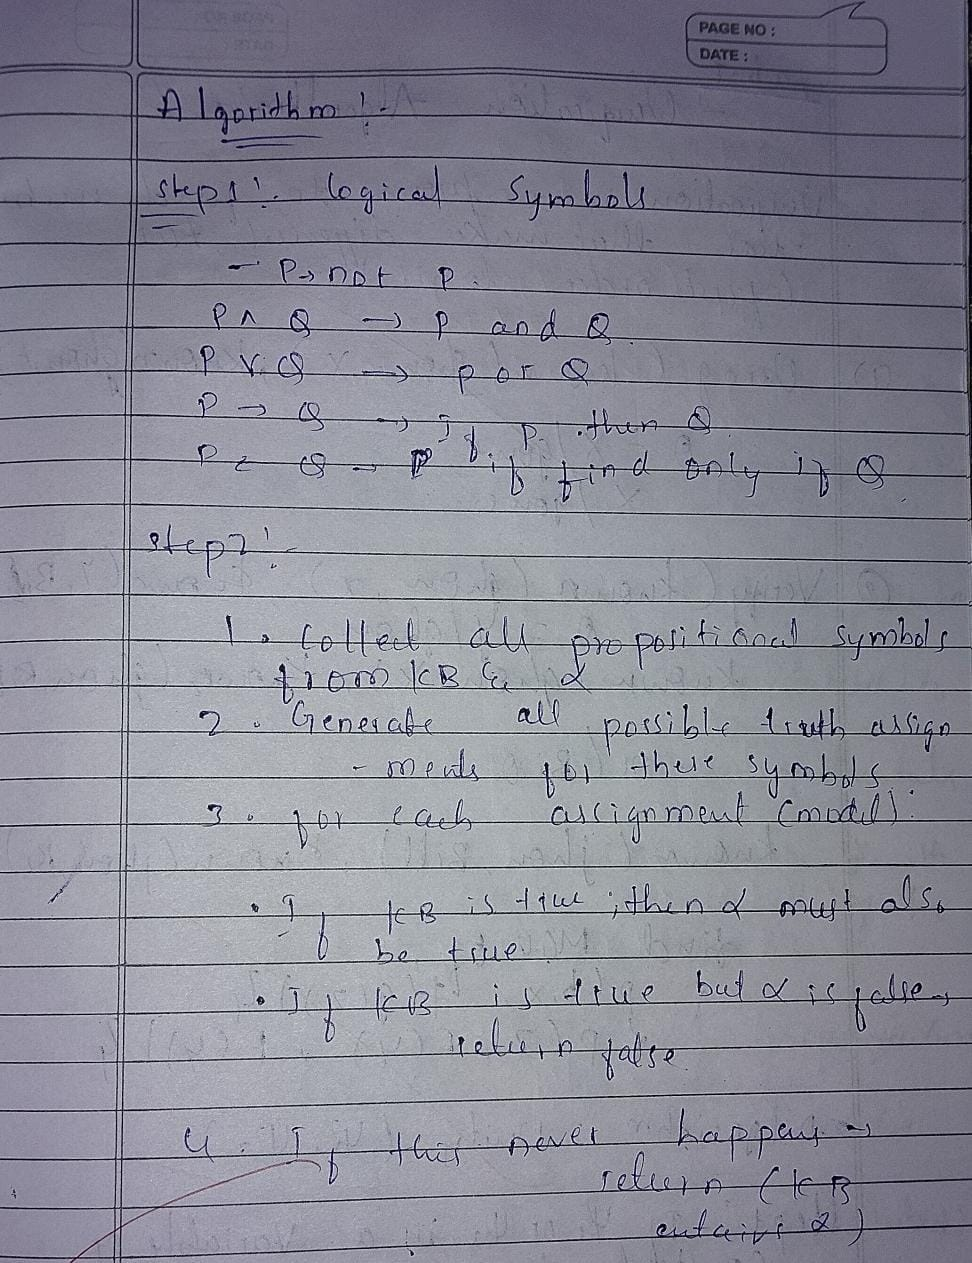 PAGE NO :
DATE :
Algorithm :-
step1 :- logical symbols
- P → not P.
P ∧ Q → P and Q.
P ∨ Q → p or Q
P → Q → If P. then Q.
Q → P if find only if Q.
step2 :-
1. Collect all propositional symbols
from KB & α
2. Generate all possible truth assign
- ments for these symbols
3. for each assignment (model):
• If KB is true ; then α must also
be true.
• If KB is true but α is false →
return false.
4. If this never happens →
return (KB
entails α)